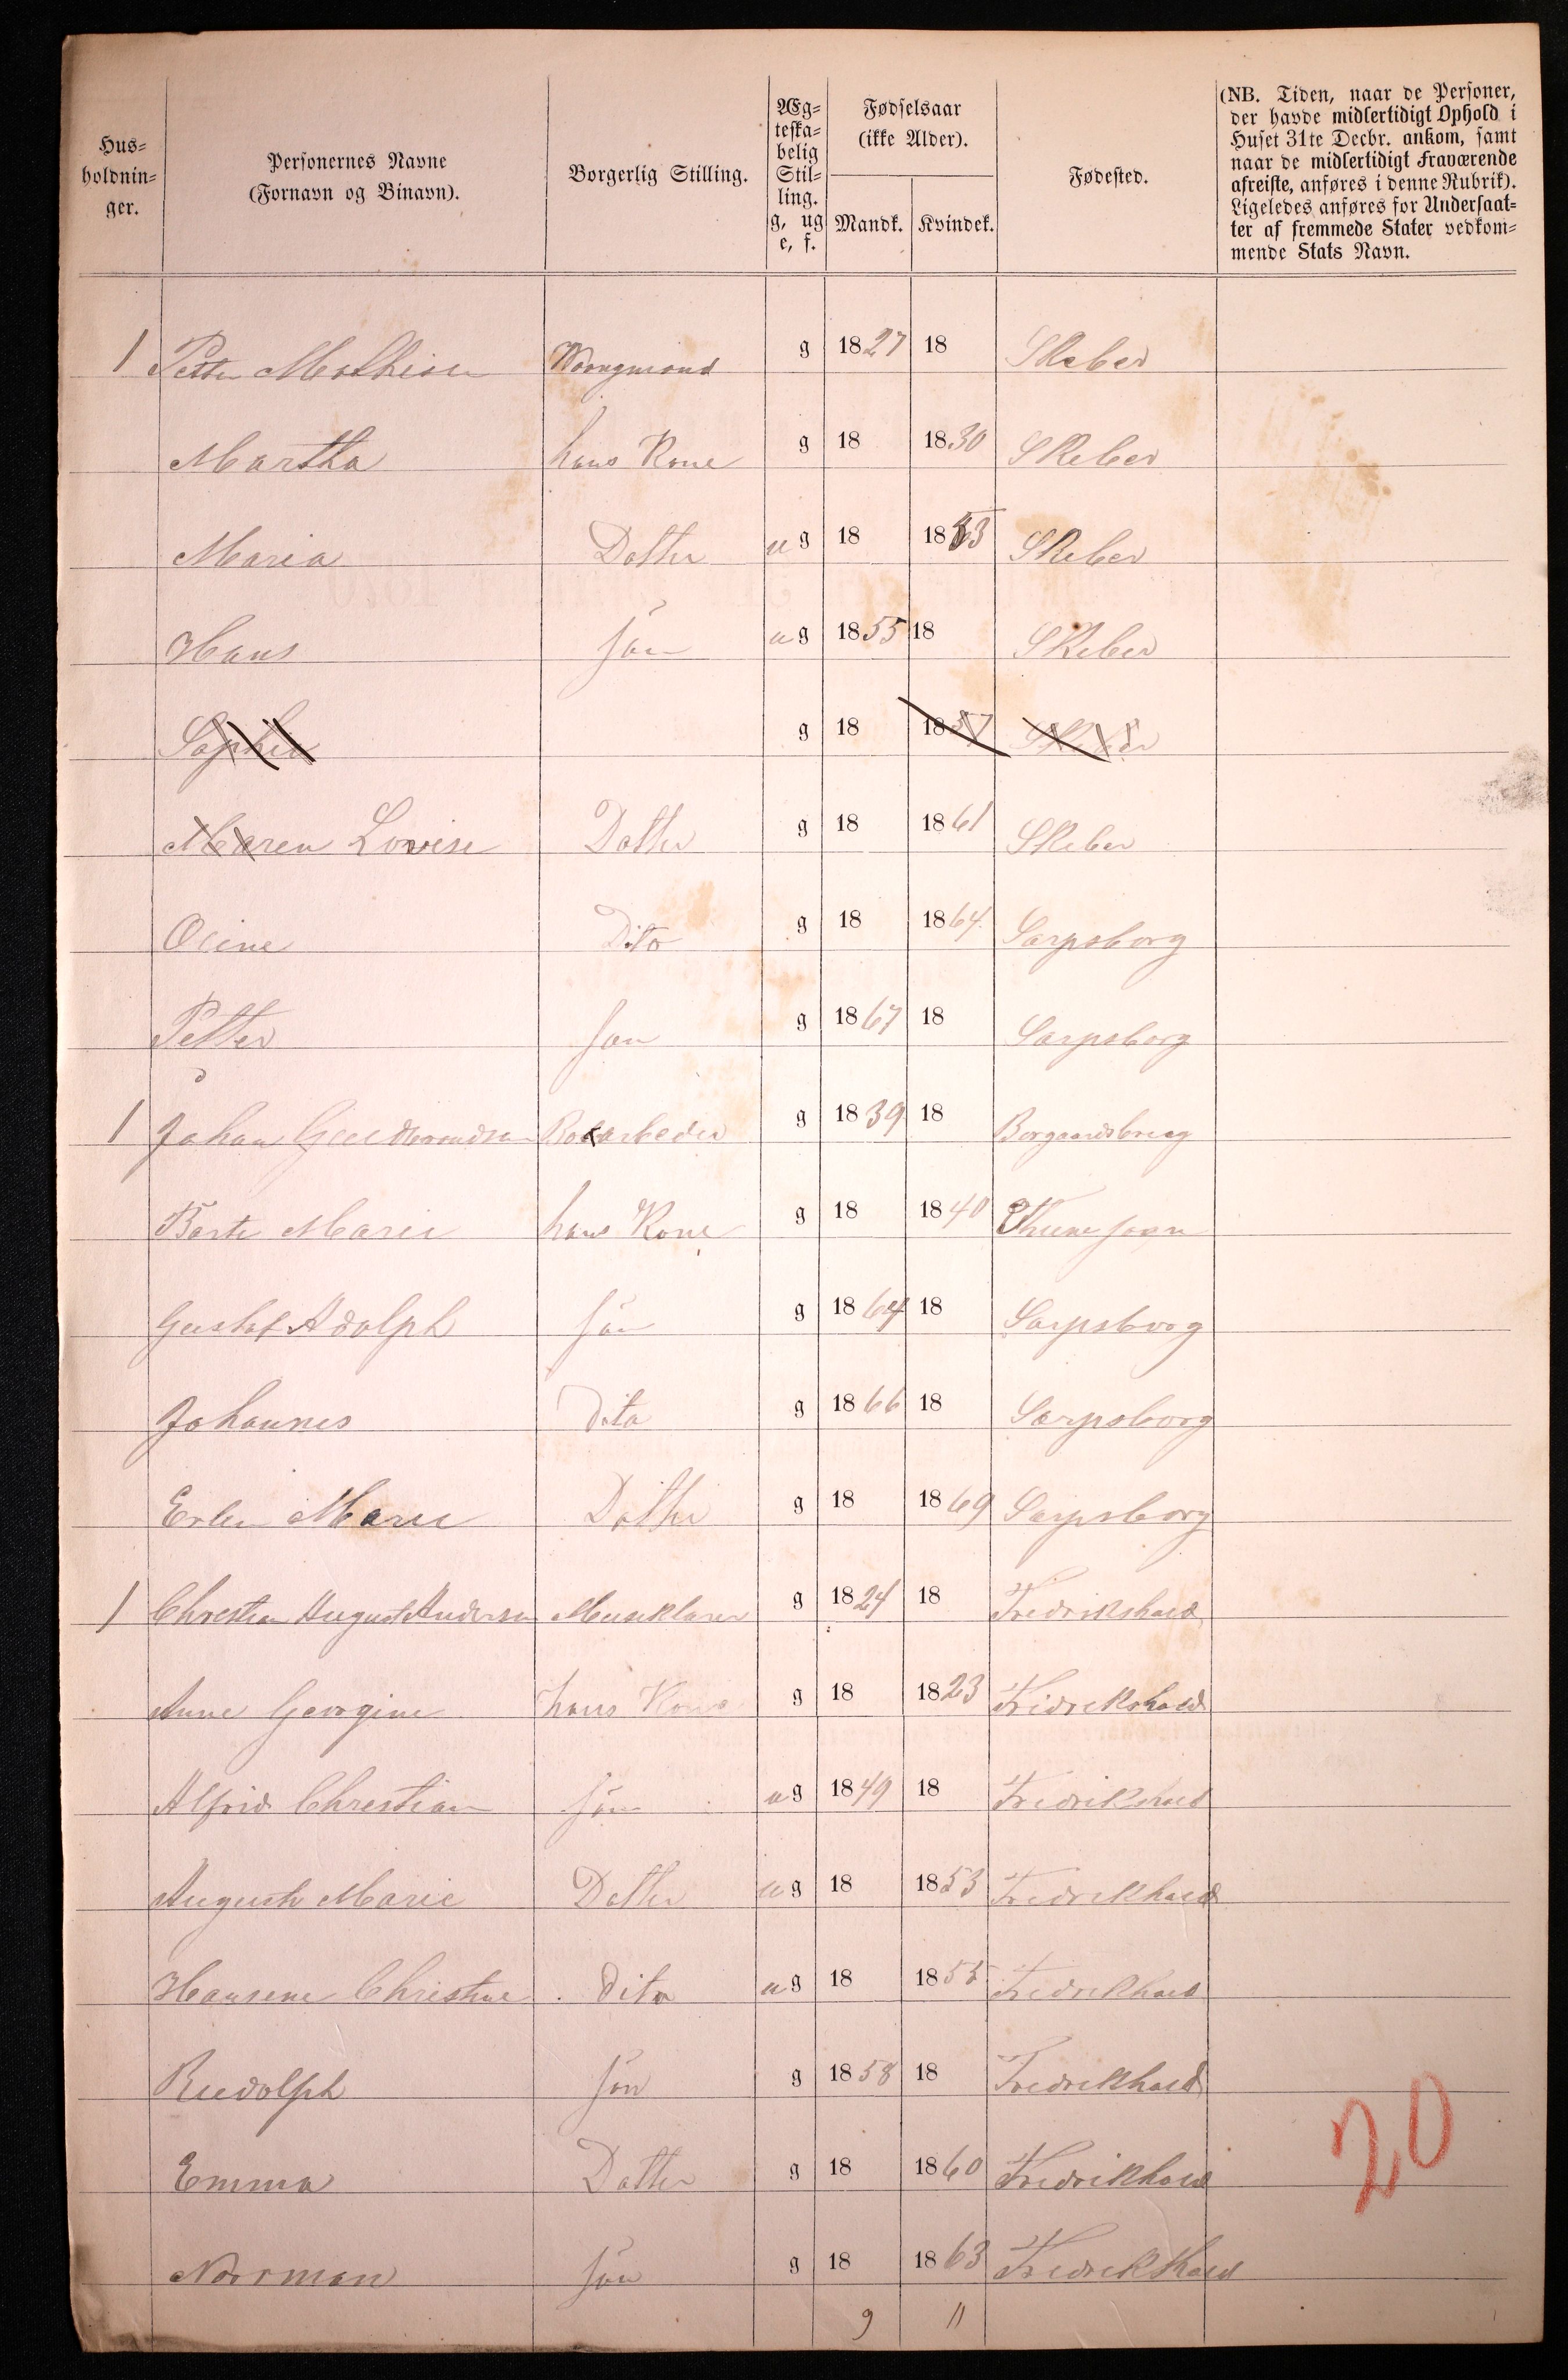 Hus=
holdnin=
ger.
Personernes Navne
(Fornavn og Binavn).
Borgerlig Stilling.
Æg=
teska=
belig
Stil=
ling.
g, ug
e, f.
Fødselsaar
(ikke Alder).
Mandk. Kvindek.
Fødested.
(NB. Tiden, naar de Personer,
der havde midlertidigt Ophold i
Huset 31te Decbr. ankom, samt
naar de midlertidigt Fraværende
afreiste, anføres i denne Rubrik).
Ligeledes anføres for Undersaat=
ter af fremmede Stater vedkom=
mende Stats Navn.
1 Petter Mathisen g 1827 18 Skeber
Martha hans Kone g 18 1830 Skeber
Maria Datter ug 18 1853 Skeber
Hans Søn ug 1855 18 Skeber
Sophie g 18 1857 Skeber
Maren Lovise Datter g 18 1861 Skeber
Oline Dito g 18 1864 Sarpsborg
Petter Søn g 1867 18 Sarpsborg
1 Johan g 1839 18
Berte Marie hans Kone g 18 1840 Thune sogn
Gustaf Adolph Søn g 1864 18 Sarpsborg
Johannes Dito g 1866 18 Sarpsborg
Marie Datter g 18 1869 Sarpsborg
1 Christian August Andersen g 1824 18 Fredrikshald
Anne Georgine hans Kone g 18 1823 Fridrikshald
Alfrid Christian Søn ug 1849 18 Fredrikshald
Auguste Marie Datter ug 18 1853 Fredrikhald
Hansene Christine Dito ug 18 1855 Fredrikhald
Rudolph Søn g 1858 18 Fredrikhald
Emma Datter g 18 1860 Fredrikhald
Norman Søn g 18 1863 Fredrikshald
9 11
20